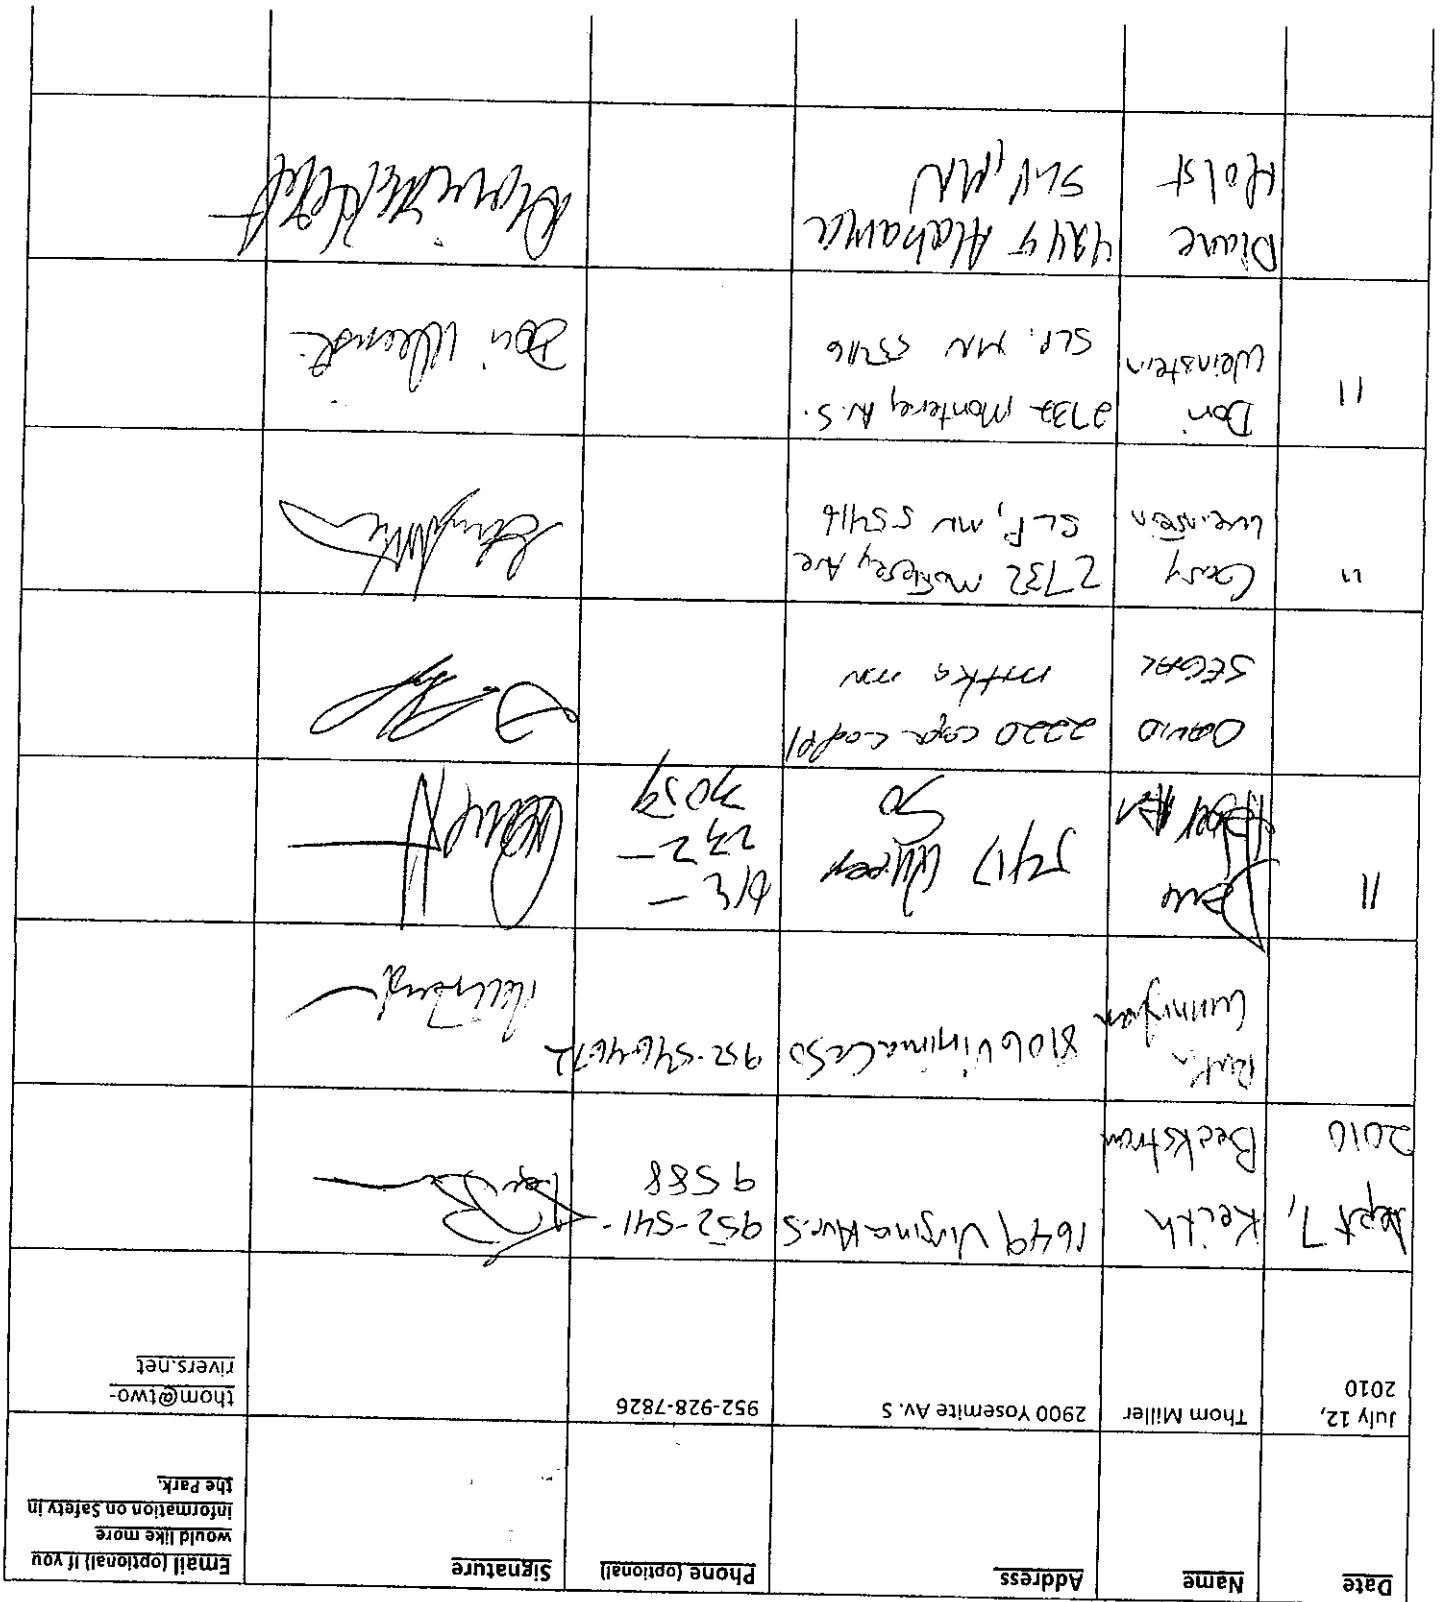 Date
Name
Address
Phone (optional)
Signature
Email (optional) If you
would like more
information on Safety in
the Park.
July 12,
2010
Thom Miller
2900 Yosemite Av. S
952-928-7826
thom@two-
rivers.net
Sept 7,
2010
Keith
Beckstrom
1649 Virginia Av. S
952-541-
9588
8106 Virginia
952-546-4672
11
5417
So
612-
232-
3059
DAVID
SEGAL
2220 cape cod Pl
mtka mn
11
Gary
Weinstein
2732 Monterey Ave
SLP, MN 55416
11
Dori
Weinstein
2732 Monterey Av. S.
SLP, MN 55416
Diane
Holst
Alabama
MN